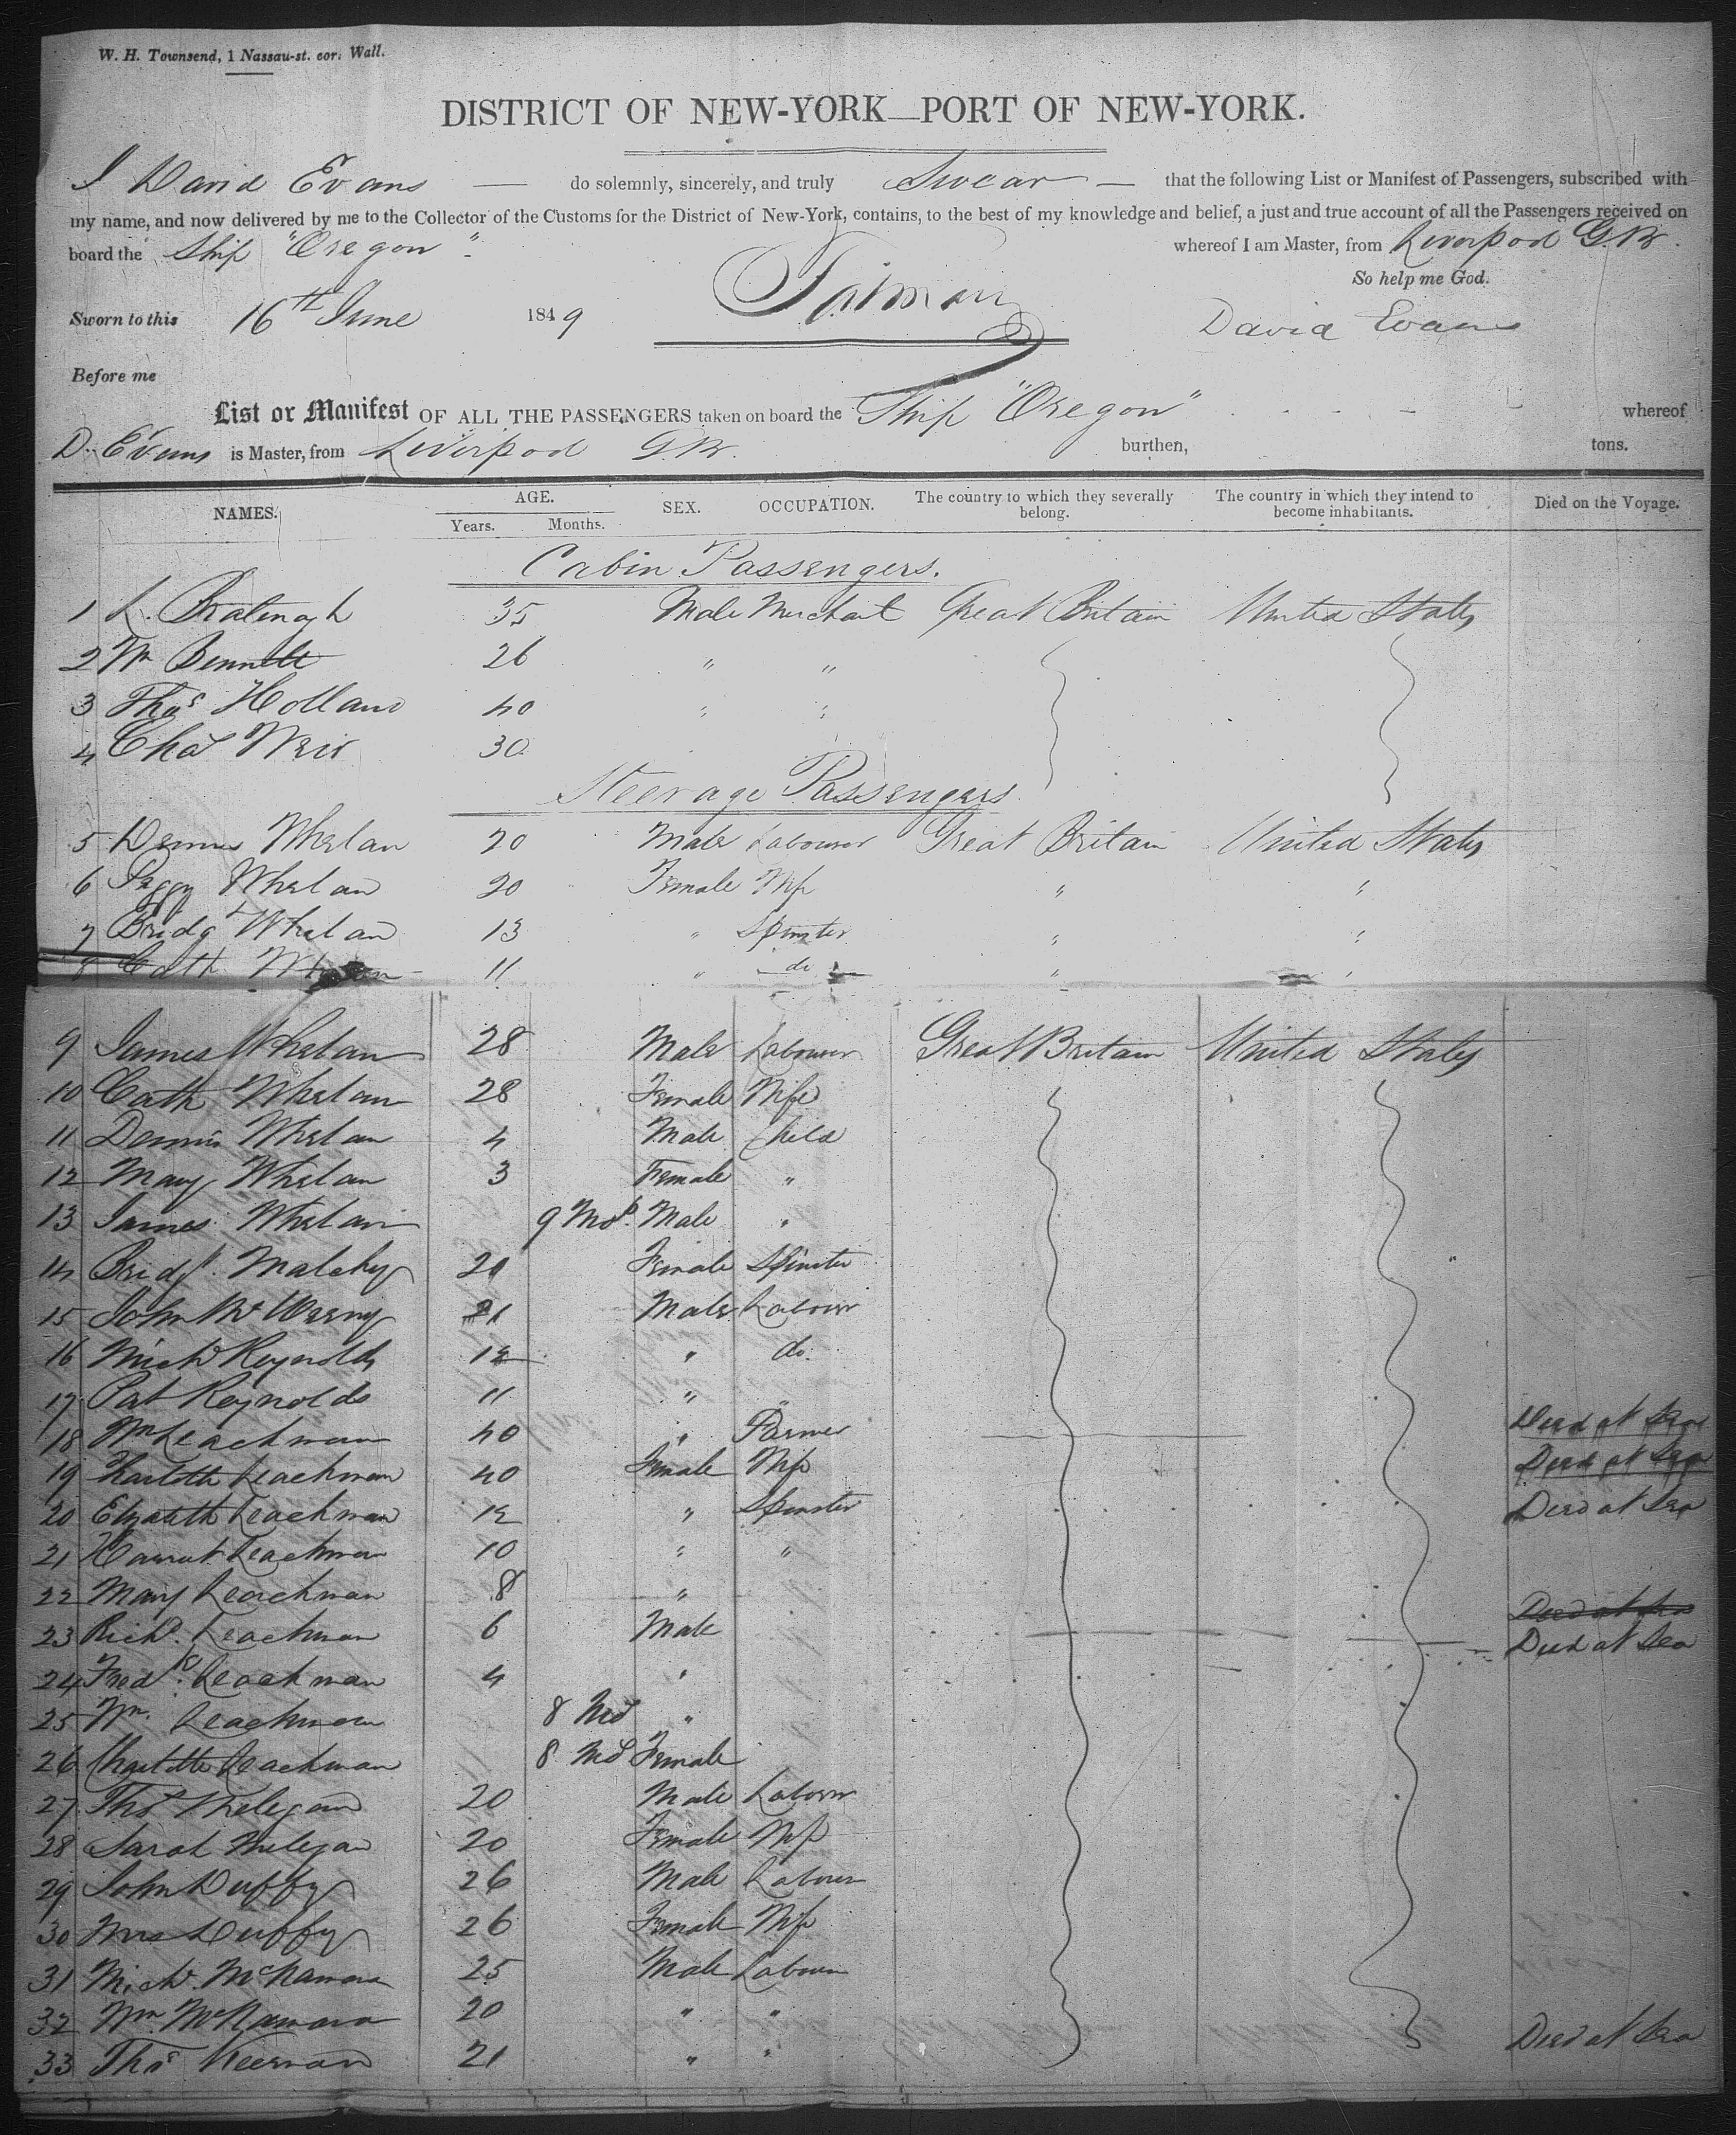 W. H. Townsend, 1 Nassau-st. cor. Wall.
DISTRICT OF NEW-YORK—PORT OF NEW-YORK.
I David Evans — do solemnly, sincerely, and truly Swear — that the following List or Manifest of Passengers, subscribed with
my name, and now delivered by me to the Collector of the Customs for the District of New-York, contains, to the best of my knowledge and belief, a just and true account of all the Passengers received on
board the Ship "Oregon" whereof I am Master, from Liverpool G.B.
So help me God.
Sworn to this 16th June 1849 David Evans
Before me
List or Manifest OF ALL THE PASSENGERS taken on board the Ship "Oregon" whereof
D. Evans is Master, from Liverpool G.B. burthen, tons.
NAMES. AGE. Years. Months. SEX. OCCUPATION. The country to which they severally belong. The country in which they intend to become inhabitants. Died on the Voyage.
Cabin Passengers.
1 35 Male Merchant Great Britain United States
2 Wm Bennett 26 " "
3 Thos Holland 40 " "
4 Chas Weir 30
Steerage Passengers
5 Dennis Whelan 20 Male Labourer Great Britain United States
6 Peggy Whelan 20 Female Wife " "
7 Bridgt Whelan 13 " Spinster " "
8 Cath Whelan 11 " do " "
9 James Whelan 28 Male Labourer Great Britain United States
10 Cath Whelan 28 Female Wife
11 Dennis Whelan 4 Male Child
12 Mary Whelan 3 Female "
13 James Whelan 9 Mos. Male "
14 Bridgt. Malchy 20 Female Spinster
15 John 21 Male Labour
16 Michl Reynolds 12 " do.
17 Pat Reynolds 11 " "
18 Wm Leachman 40 " Farmer Died at Sea
19 Charlotte Leachman 40 Female Wife Died at Sea
20 Elizabeth Leachman 12 " Spinster Died at Sea
21 Harriet Leachman 10 " "
22 Mary Leachman 8 " Died at Sea
23 Richd. Leachman 6 Male Died at Sea
24 Fredk. Leachman 4 "
25 Wm. Leachman 8 Mos "
26 Charlotte Leachman 8 Mos Female
27 Thos 20 Male Labour
28 Sarah 20 Female Wife
29 John Duffy 26 Male Labour
30 Mrs Duffy 26 Female Wife
31 Michl. McNamara 25 Male Labour
32 Wm. McNamara 20 " " Died at Sea
33 Thos Keernan 21 " "